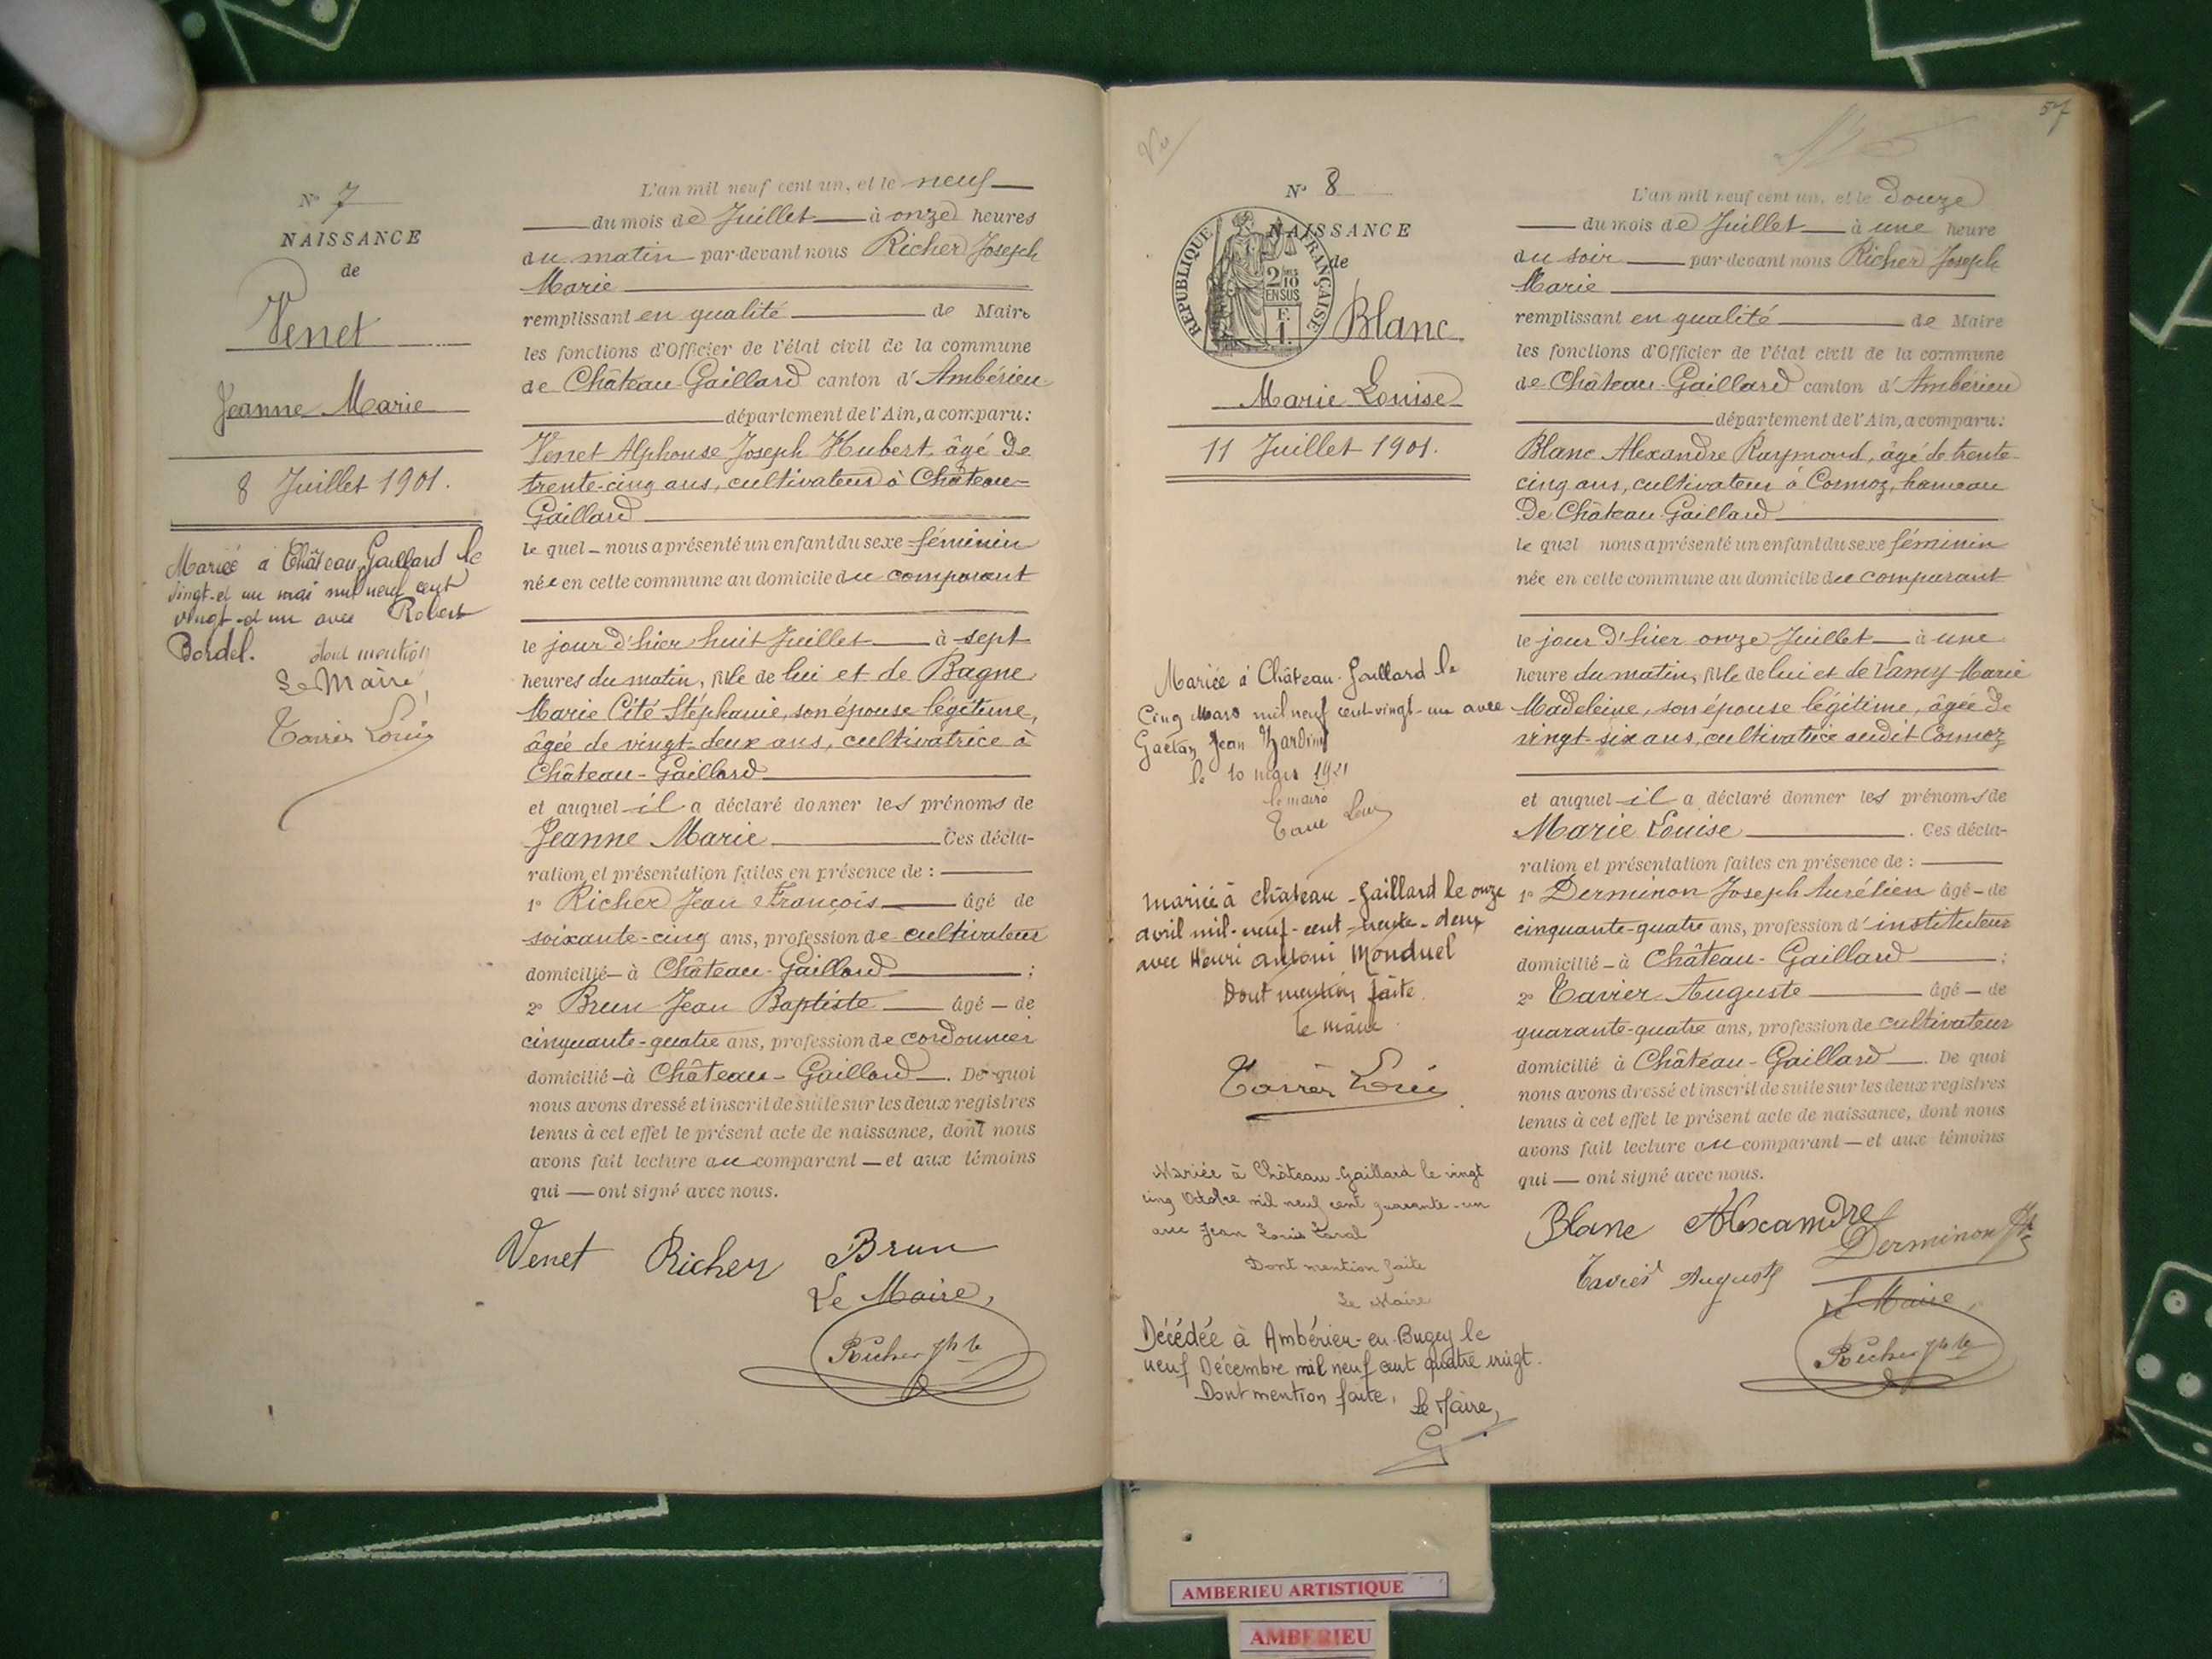 N° 7
NAISSANCE
de
Venet
Jeanne Marie
8 Juillet 1901.
Mariée à Château-Gaillard le
vingt-et un mai mil neuf cent
vingt-et un avec Robert
Bordel. dont mention
Le Maire,
L'an mil neuf cent un, et le neuf
du mois de Juillet à onze heures
du matin par-devant nous Richer Joseph
Marie
remplissant en qualité de Maire
les fonctions d'Officier de l'état civil de la commune
de Château-Gaillard canton d'Ambérieu
département de l'Ain, a comparu:
Venet Alphonse Joseph Hubert, âgé de
trente-cinq ans, cultivateur à Château-
Gaillard
le quel nous a présenté un enfant du sexe féminin
née en cette commune au domicile du comparant
le jour d'hier huit Juillet à sept
heures du matin, fille de lui et de Bagne
Marie Cité Stéphanie, son épouse légitime,
âgée de vingt-deux ans, cultivatrice à
Château-Gaillard
et auquel il a déclaré donner les prénoms de
Jeanne Marie Ces décla-
ration et présentation faites en présence de :
1° Richer Jean François âgé de
soixante-cinq ans, profession de cultivateur
domicilié à Château-Gaillard ;
2° Brun Jean Baptiste âgé de
cinquante-quatre ans, profession de cordonnier
domicilié à Château-Gaillard. De quoi
nous avons dressé et inscrit de suite sur les deux registres
tenus à cet effet le présent acte de naissance, dont nous
avons fait lecture au comparant et aux témoins
qui ont signé avec nous.
Venet Richer Brun
Le Maire,
Richer Jph Me
57
Vu
N° 8
NAISSANCE
de
RÉPUBLIQUE FRANÇAISE
2/10
EN SUS
F.
1.
Blanc
Marie Louise
11 Juillet 1901.
Mariée à Château-Gaillard le
Cinq Mars mil neuf cent vingt-un avec
Gaëtan Jean
le 10 mars 1921
le maire
mariée à Château-Gaillard le onze
avril mil-neuf-cent-trente-deux
avec Henri Antoni Monduel
Dont mention faite.
le maire.
Mariée à Château-Gaillard le vingt
cinq Octobre mil neuf cent quarante-un
avec Jean Louis Laval
Dont mention faite
Le Maire
Décédée à Ambérieu-en-Bugey le
neuf Décembre mil neuf cent quatre vingt.
Dont mention faite, Le Maire,
L'an mil neuf cent un, et le Douze
du mois de Juillet à une heure
du soir par devant nous Richer Joseph
Marie
remplissant en qualité de Maire
les fonctions d'Officier de l'état civil de la commune
de Château-Gaillard canton d'Ambérieu
département de l'Ain, a comparu:
Blanc Alexandre Raymond, âgé de trente-
cinq ans, cultivateur à Cormoz, hameau
De Château-Gaillard
le quel nous a présenté un enfant du sexe féminin
née en cette commune au domicile du comparant
le jour d'hier onze Juillet à une
heure du matin, fille de lui et de Lamy Marie
Madeleine, son épouse légitime, âgée de
vingt-six ans, cultivatrice audit Cormoz
et auquel il a déclaré donner les prénoms de
Marie Louise . Ces décla-
ration et présentation faites en présence de :
1° Derminon Joseph Aurélien âgé de
cinquante-quatre ans, profession d'instituteur
domicilié à Château-Gaillard ;
2° Tavier Auguste âgé de
quarante-quatre ans, profession de cultivateur
domicilié à Château-Gaillard. De quoi
nous avons dressé et inscrit de suite sur les deux registres
tenus à cet effet le présent acte de naissance, dont nous
avons fait lecture au comparant et aux témoins
qui ont signé avec nous.
Blanc Alexandre Derminon
Tavier Auguste
Le Maire,
Richer Jph Me
AMBERIEU ARTISTIQUE
AMBERIEU